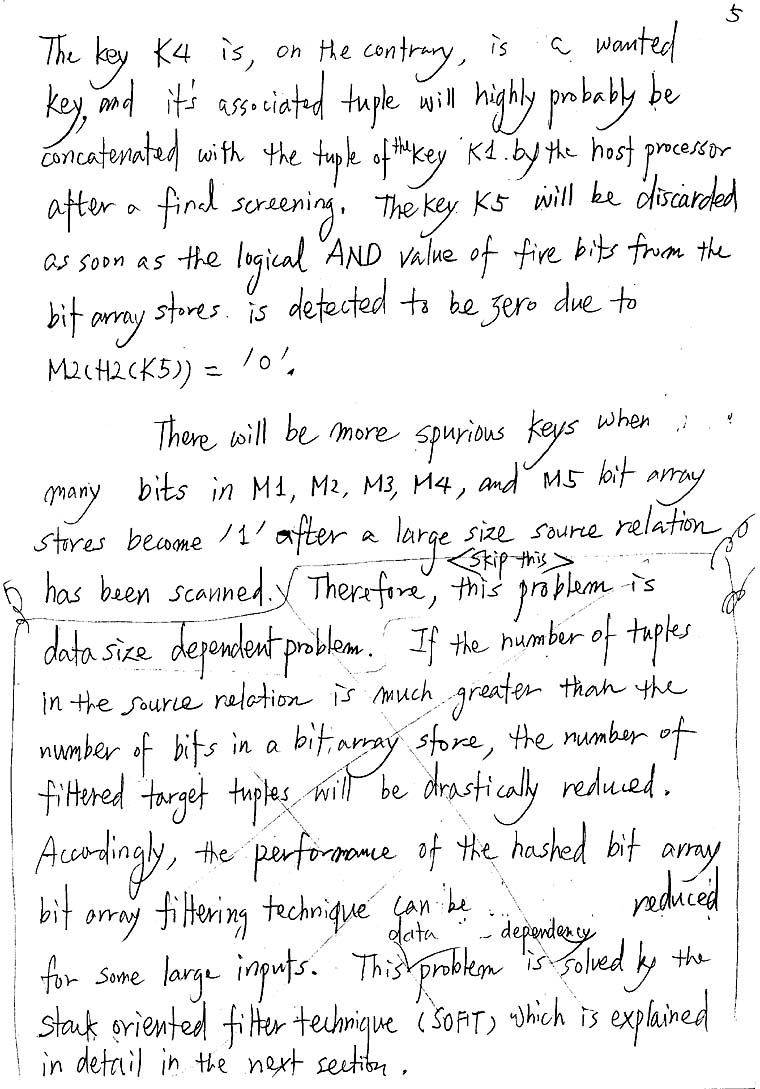 5
The key K4 is, on the contrary, is a wanted
key, and it's associated tuple will highly probably be
concatenated with the tuple of the key K1 by the host processor
after a final screening. The key K5 will be discarded
as soon as the logical AND value of five bits from the
bit array stores. is detected to be zero due to
M2(H2(K5)) = '0'.
There will be more spurious keys when
many bits in M1, M2, M3, M4, and M5 bit array
stores become '1' after a large size source relation
<skip this>
has been scanned. Therefore, this problem is
data size dependent problem. If the number of tuples
in the source relation is much greater than the
number of bits in a bit array store, the number of
filtered target tuples will be drastically reduced.
Accordingly, the performance of the hashed bit array
bit array filtering technique can be reduced
data dependency
for some large inputs. This problem is solved by the
stack oriented filter technique (SOFT) which is explained
in detail in the next section.